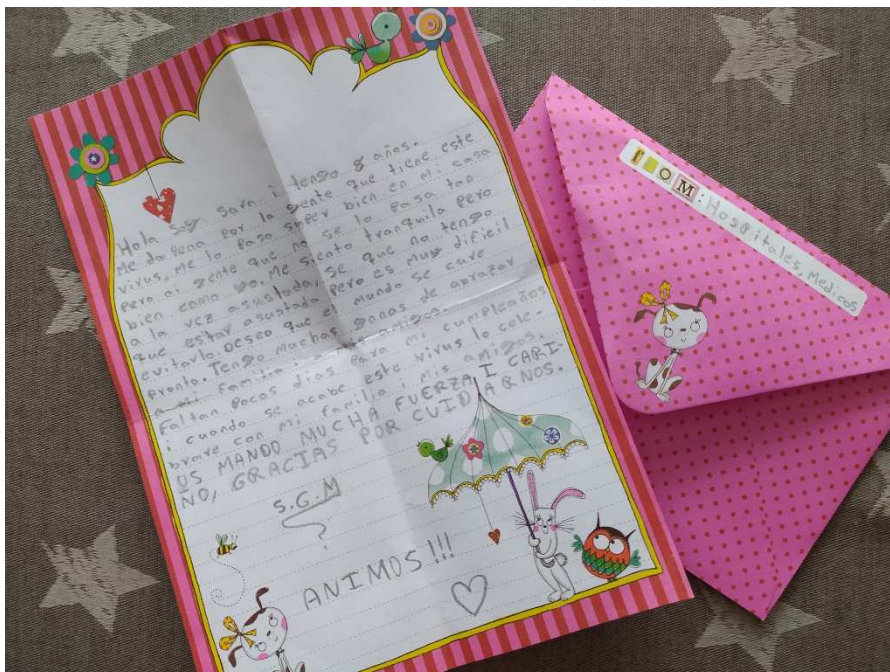 Hola soy sara i tengo 8 años.
Me da pena por la gente que tiene este
virus. Me lo paso super bien en mi casa
pero ai gente que no se lo pasa tan
bien como yo. Me siento tranquila pero
a la vez asustada, se que no tengo
que estar asustada pero es muy dificil
evitarlo. Deseo que el mundo se cure
pronto. Tengo muchas ganas de abrazar
a mi familia i amigos.
Faltan pocos dias para mi cumpleaños
i cuando se acabe este virus lo cele-
brare con mi familia i mis amigos.
US MANDO MUCHA FUERZA I CARI-
ÑO, GRACIAS POR CUIDARNOS.
S.G.M
ANIMOS!!!
FROM: Hospitales, Medicos